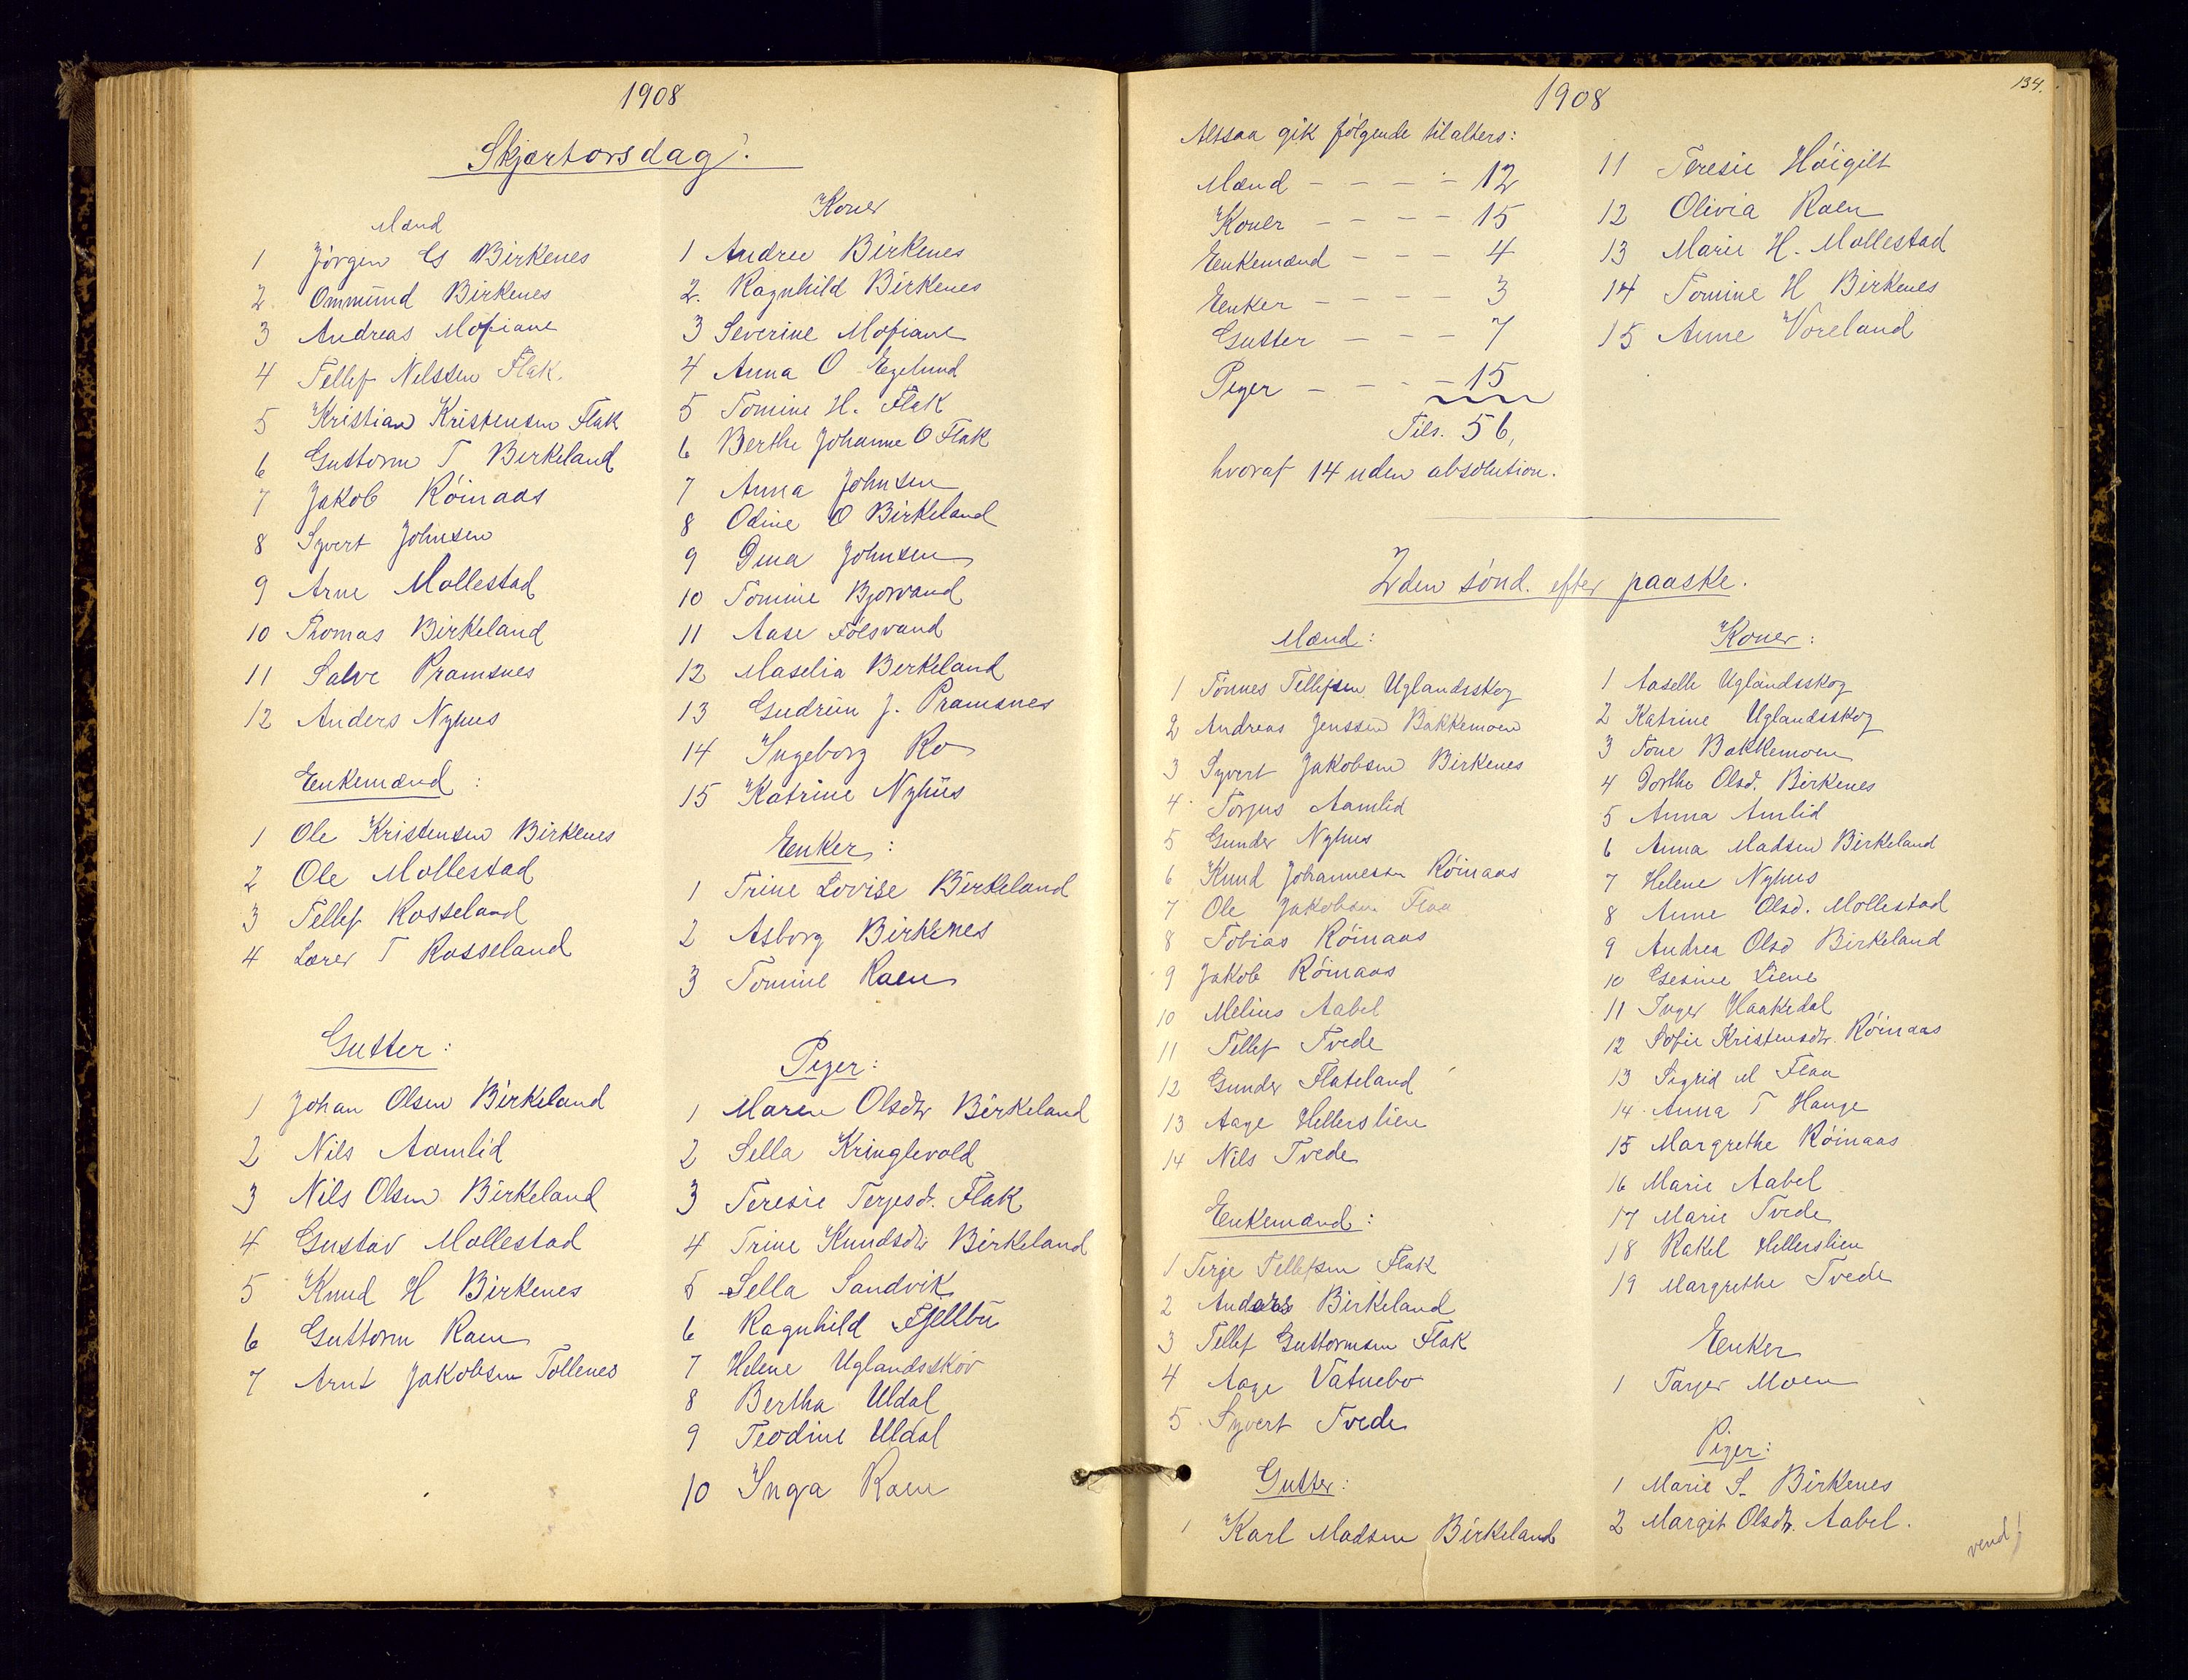 1908
Skjærtorsdag.
Mænd
1 Jörgen G Birkenes
2 Ommund Birkenes
3 Andreas Mosfiane
4 Tellef Nilssen Flak.
5 Kristian Kristensen Flak
6 Guttorm T Birkeland
7 Jakob Röinaas
8 Syvert Johnsen
9 Arne Mollestad
10 Thomas Birkeland
11 Salve Pramsnes
12 Anders Nyhus
Enkemænd:
1 Ole Kristensen Birkenes
2 Ole Mollestad
3 Tellef Rosseland
4 Lærer T Rosseland
Gutter:
1 Johan Olsen Birkeland
2 Nils Aamlid
3 Nils Olsen Birkeland
4 Gustav Mollestad
5 Knud H Birkenes
6 Guttorm Raen
7 Arnt Jakobsen Tollenes
Koner
1 Andrea Birkenes
2. Ragnhild Birkenes
3 Severine Mosfiane
4 Anna O Egelund
5 Tomine H. Flak
6 Berthe Johanne O Flak
7 Anna Johnsen
8 Odine O Birkeland
9 Dina Johnsen
10 Tomine Bjorvand
11 Aase Folsvand
12 Maselia Berkeland
13 Gudrun J. Pramsnes
14 Ingeborg Ro
15 Katrine Nyhus
Enker:
1 Trine Lovise Birkeland
2 Asborg Birkenes
3 Tomine Raen
Peger:
1 Maren Olsdtr Birkeland
2 Sella Kringlevold
3 Teresie Terjesd. Flak
4 Trine Knudsdtr Birkeland
5 Sella Sandvik
6 Ragnhild Fjellbu
7 Helene Uglandsskov
8 Bertha Uldal
9 Teodine Uldal
10 Inga Raen
134.
1908
Altsaa gik følgende til alters:
Mænd - - - - 12
Koner - - - - 15
Enkemænd - - - 4
Enker - - - - 3
Gutter - - - 7
Peger - - - - 15
Tils. 56,
hvoraf 14 uden absolution.
11 Teresie Höigilt
12 Olivia Raen
13 Marie H. Mollestad
14 Tomine H Birkenes
15 Anne Voreland
2den sönd. efter paaske.
Mænd:
1 Tönnes Tellefsen Uglandsskog
2 Andreas Jenssen Bakkemoen
3 Syvert Jakobsen Birkenes
4 Torjus Aamlid
5 Gunder Nyhus
6 Knud Johannesen Röinaas
7 Ole Jakobsen Flaa
8 Tobias Röinaas
9 Jakob Röinaas
10 Melius Aabel
11 Tellef Tvede
12 Gunder Flateland
13 Aage Hellerslien
14 Nils Tvede
Enkemænd:
1 Terje Tellefsen Flak
2 Anders Birkeland
3 Tellef Guttormsen Flak
4 Aage Vatnebo
5 Syvert Tvede
Gutter:
1 Karl Madsen Birkeland
Koner:
1 Aaselle Uglandsskog
2 Katrine Uglandsskog
3 Tone Bakkemoen
4 Dorthe Olsd. Birkenes
5 Anna Amlid
6 Anna Madsen Birkeland
7 Helene Nyhus
8 Anne Olsd. Mollestad
9 Andrea Olsd Birkeland
10 Gesine Liene
11 Inger Haakedal
12 Sofie Kristensdtr. Röinaas
13 Sigrid M Flaa
14 Anna T Hauge
15 Margrethe Röinaas
16 Marie Aabel
17 Marie Tvede
18 Rakel Hellerslien
19 Margrethe Tvede
Enker
1 Tarjer Moen
Piger:
1 Marie S. Birkenes
2 Margit Olsdtr. Aabel.
vend!